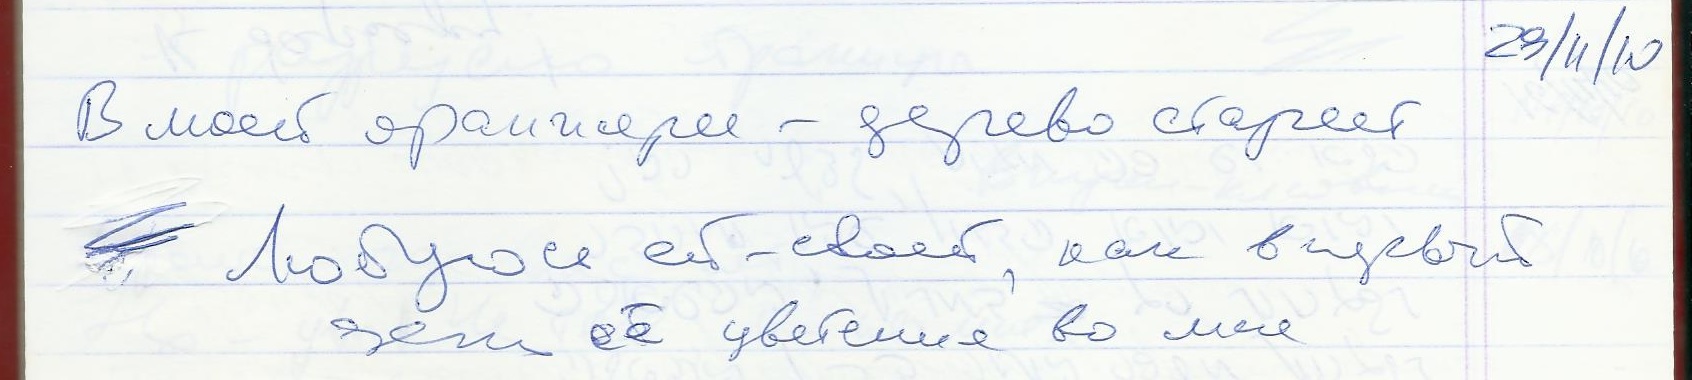 29/11/10
В моей оранжерее – дерево стареет
Любуюсь ей-своей, как в первый
день её цветения во мне